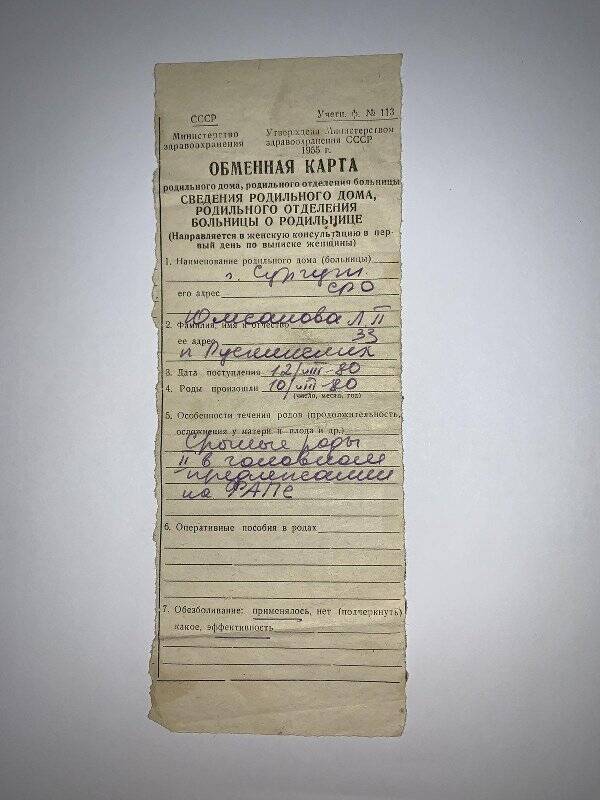 СССР
Учетн. ф. № 113
Министерство здравоохранения
Утверждена Министерством здравоохранения СССР 1955 г.
ОБМЕННАЯ КАРТА
родильного дома, родильного отделения больницы
СВЕДЕНИЯ РОДИЛЬНОГО ДОМА,
РОДИЛЬНОГО ОТДЕЛЕНИЯ
БОЛЬНИЦЫ О РОДИЛЬНИЦЕ
(Направляется в женскую консультацию в пер-
вый день по выписке женщины)
1. Наименование родильного дома (больницы)
г. Сургут
его адрес СРО
2. Фамилия, имя и отчество Л П
33
ее адрес п
3. Дата поступления 12/VIII-80
4. Роды произошли 10/VIII-80
(число, месяц, год)
5. Особенности течения родов (продолжительность,
осложнения у матери и плода и др.)
Срочные роды
II в головном
предлежании
на ФАПе
6. Оперативные пособия в родах
7. Обезболивание: применялось, нет (подчеркнуть)
какое, эффективность